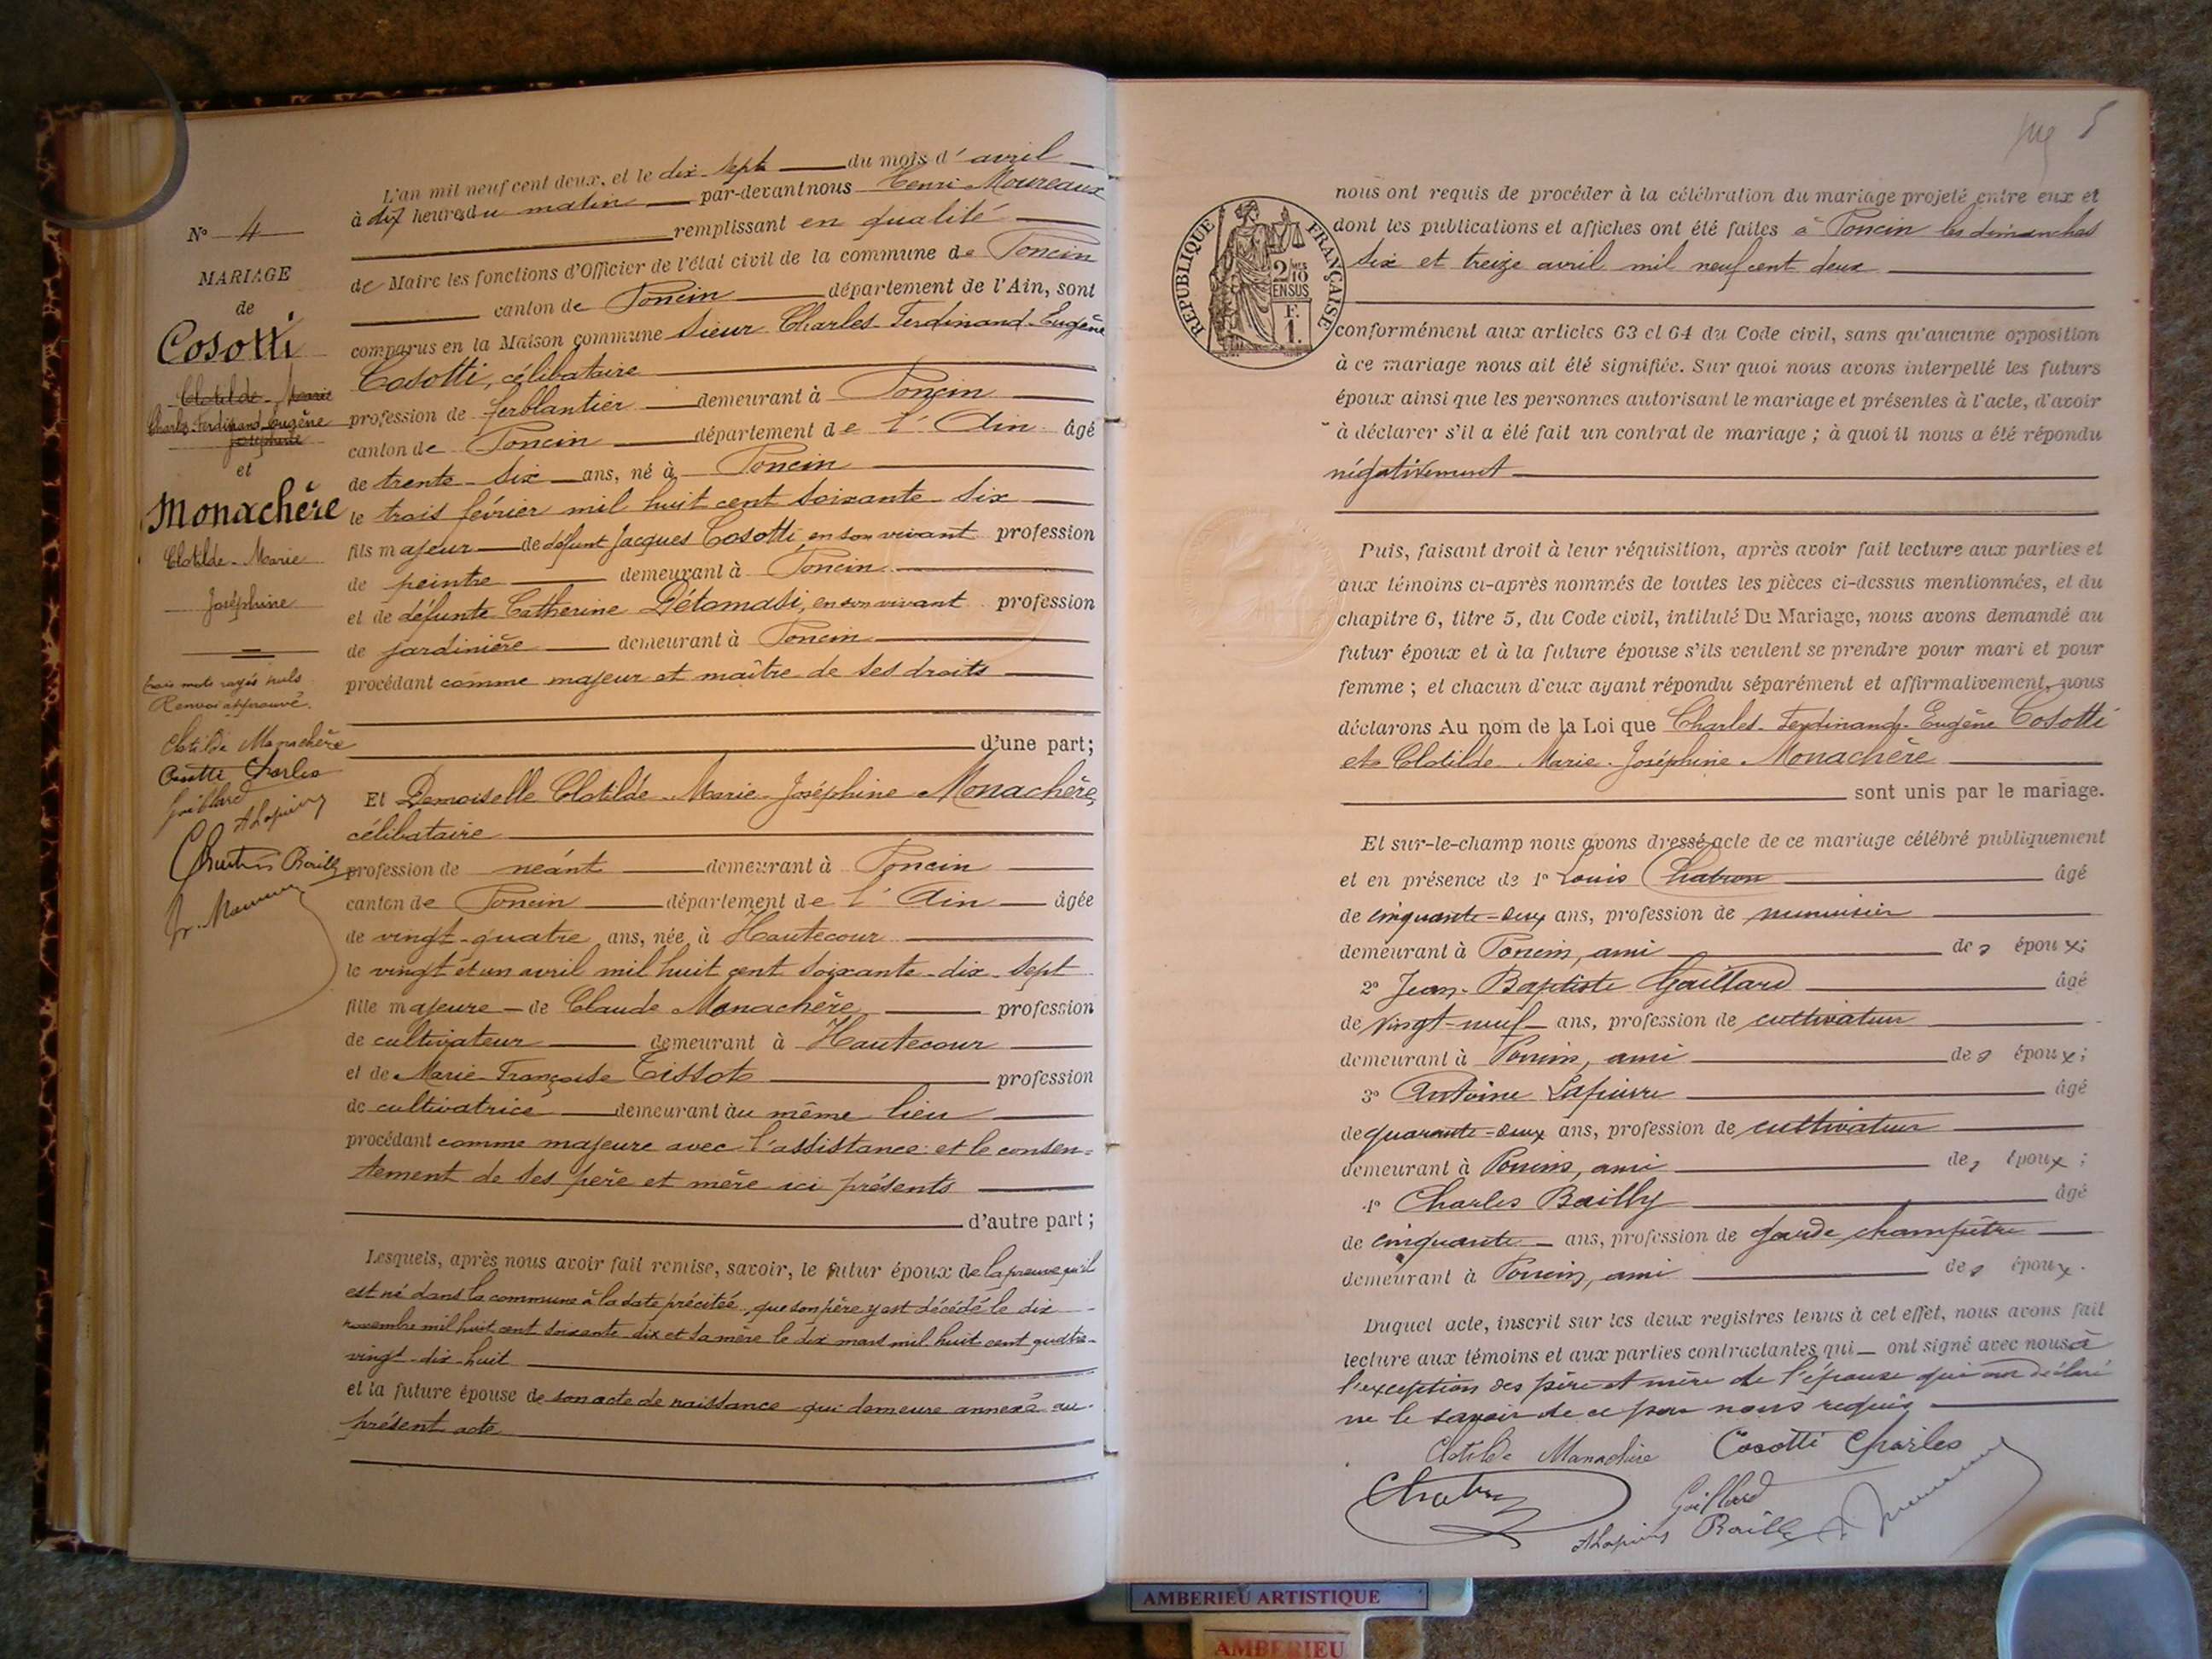 L'an mil neuf cent deux, et le dix-sept du mois d'avril
à dix heures du matin par-devant nous Henri Moureaux
remplissant en qualité
de Maire les fonctions d'Officier de l'état civil de la commune de Poncin
canton de Poncin département de l'Ain, sont
comparus en la Maison commune Sieur Charles-Ferdinand-Eugène
Cosotti, célibataire
profession de ferblantier demeurant à Poncin
canton de Poncin département de l'Ain âgé
de trente-six ans, né à Poncin
le trois février mil huit cent soixante-six
fils majeur de défunt Jacques Cosotti, en son vivant profession
de peintre demeurant à Poncin
et de défunte Catherine Détomasi, en son vivant profession
de jardinière demeurant à Poncin
procédant comme majeur et maître de ses droits
d'une part;
Et Demoiselle Clotilde-Marie-Joséphine Monachère,
célibataire
profession de néant demeurant à Poncin
canton de Poncin département de l'Ain âgée
de vingt-quatre ans, née à Hautecour
le vingt et un avril mil huit cent soixante-dix-sept
fille majeure de Claude Monachère profession
de cultivateur demeurant à Hautecour
et de Marie-Françoise Tissot profession
de cultivatrice demeurant au même lieu
procédant comme majeure avec l'assistance et le consen=
tement de ses père et mère ici présents
d'autre part;
Lesquels, après nous avoir fait remise, savoir, le futur époux de la preuve qu'il
est né dans la commune à la date précitée, que son père y est décédé le dix
novembre mil huit cent soixante-dix et sa mère le dix mars mil huit cent quatre-
vingt-dix-huit
et la future épouse de son acte de naissance qui demeure annexé au
présent acte
N° 4
MARIAGE
de
Cosotti
Clotilde-Marie
Charles-Ferdinand-Eugène
Joséphine
et
Monachère
Clotilde-Marie
Joséphine
trois mots rayés nuls
Renvoi approuvé.
Clotilde Monachère
Cosotti Charles
Gaillard
A Lapierre
Chatron Bailly
5
RÉPUBLIQUE FRANÇAISE
2/10
EN SUS
F.
1.
nous ont requis de procéder à la célébration du mariage projeté entre eux et
dont les publications et affiches ont été faites à Poncin les dimanches
six et treize avril mil neuf cent deux
conformément aux articles 63 et 64 du Code civil, sans qu'aucune opposition
à ce mariage nous ait été signifiée. Sur quoi nous avons interpellé les futurs
époux ainsi que les personnes autorisant le mariage et présentes à l'acte, d'avoir
à déclarer s'il a été fait un contrat de mariage; à quoi il nous a été répondu
négativement
Puis, faisant droit à leur réquisition, après avoir fait lecture aux parties et
aux témoins ci-après nommés de toutes les pièces ci-dessus mentionnées, et du
chapitre 6, titre 5, du Code civil, intitulé Du Mariage, nous avons demandé au
futur époux et à la future épouse s'ils veulent se prendre pour mari et pour
femme; et chacun d'eux ayant répondu séparément et affirmativement, nous
déclarons Au nom de la Loi que Charles-Ferdinand-Eugène Cosotti
et Clotilde-Marie-Joséphine Monachère
sont unis par le mariage.
Et sur-le-champ nous avons dressé acte de ce mariage célébré publiquement
et en présence de 1° Louis Chatron âgé
de cinquante-deux ans, profession de menuisier
demeurant à Poncin, ami des époux;
2° Jean-Baptiste Gaillard âgé
de vingt-neuf ans, profession de cultivateur
demeurant à Poncin, ami des époux;
3° Antoine Lapierre âgé
de quarante-deux ans, profession de cultivateur
demeurant à Poncin, ami des époux;
4° Charles Bailly âgé
de cinquante ans, profession de garde champêtre
demeurant à Poncin, ami des époux.
Duquel acte, inscrit sur les deux registres tenus à cet effet, nous avons fait
lecture aux témoins et aux parties contractantes qui ont signé avec nous à
l'exception des père et mère de l'épouse qui ont déclaré
ne le savoir de ce par nous requis
Clotilde Monachère Cosotti Charles
Chatron Gaillard
A Lapierre Bailly
AMBERIEU ARTISTIQUE
AMBERIEU